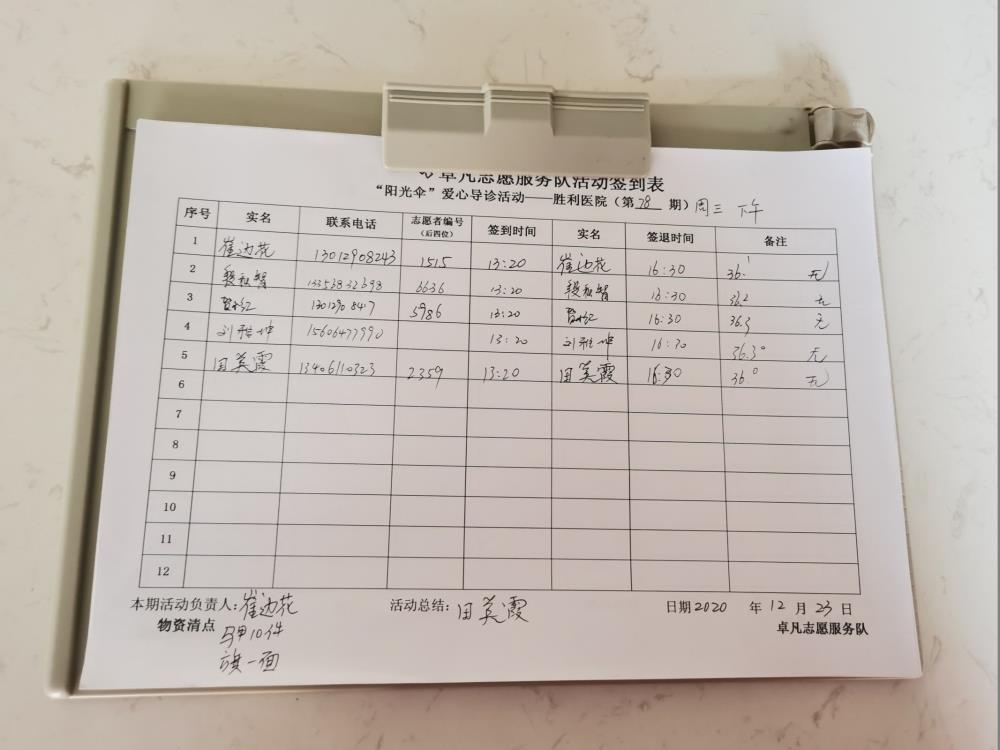 卓凡志愿服务队活动签到表
“阳光伞”爱心导诊活动——胜利医院（第78期）周三 下午
序号 实名 联系电话 志愿者编号（后四位） 签到时间 实名 签退时间 备注
1 崔边花 13012908243 1515 13:20 崔边花 16:30 36.1 无
2 13558832698 6636 13:20 16:30 36.2 无
3 5986 13:20 16:30 36.3 无
4 刘雅坤 15606477990 13:20 刘雅坤 16:30 36.3° 无
5 田英霞 13406110323 2359 13:20 田英霞 16:30 36.° 无
6
7
8
9
10
11
12
本期活动负责人：崔边花 活动总结：田英霞 日期2020 年 12 月 23 日
物资清点 马甲10件 卓凡志愿服务队
旗一面